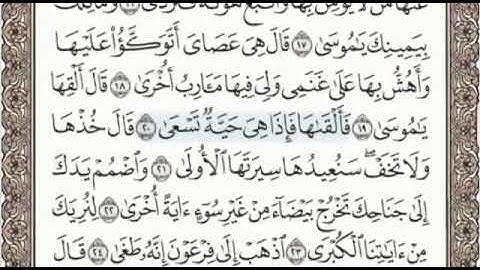 عَنْهَا مَن لَّا يُؤْمِنُ بِهَا وَٱتَّبَعَ هَوَىٰهُ فَتَرْدَىٰ ١٦ وَمَا تِلْكَ
بِيَمِينِكَ يَٰمُوسَىٰ ١٧ قَالَ هِىَ عَصَاىَ أَتَوَكَّؤُا۟ عَلَيْهَا
وَأَهُشُّ بِهَا عَلَىٰ غَنَمِى وَلِىَ فِيهَا مَـَٔارِبُ أُخْرَىٰ ١٨ قَالَ أَلْقِهَا
يَٰمُوسَىٰ ١٩ فَأَلْقَىٰهَا فَإِذَا هِىَ حَيَّةٌ تَسْعَىٰ ٢٠ قَالَ خُذْهَا
وَلَا تَخَفْ ۖ سَنُعِيدُهَا سِيرَتَهَا ٱلْأُولَىٰ ٢١ وَٱضْمُمْ يَدَكَ
إِلَىٰ جَنَاحِكَ تَخْرُجْ بَيْضَآءَ مِنْ غَيْرِ سُوٓءٍ ءَايَةً أُخْرَىٰ ٢٢ لِنُرِيَكَ
مِنْ ءَايَٰتِنَا ٱلْكُبْرَى ٢٣ ٱذْهَبْ إِلَىٰ فِرْعَوْنَ إِنَّهُۥ طَغَىٰ ٢٤ قَالَ